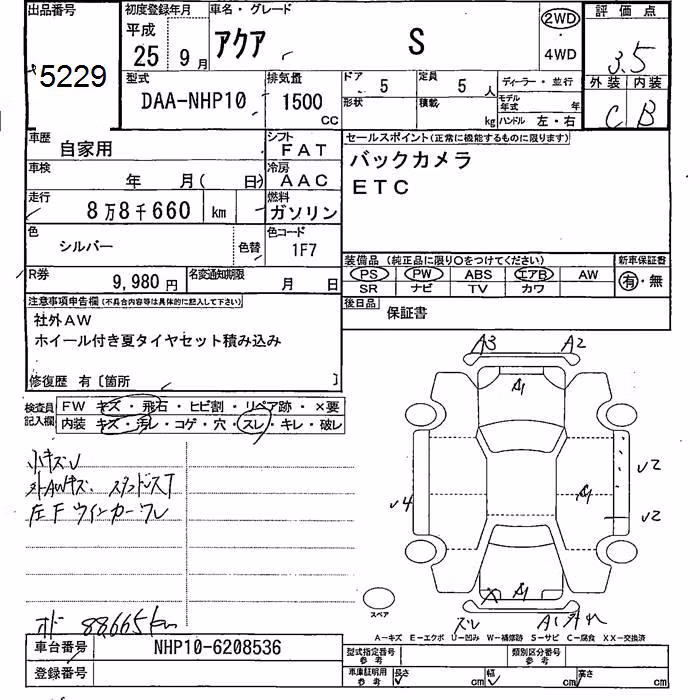 出品番号 初度登録年月 車名・グレード 評価点
平成 アクア S 2WD
5229 25 9月 4WD 3.5
型式 排気量 ドア 5 定員 5人 ディーラー・並行 外装 内装
DAA-NHP10 1500 CC 形状 積載 kg モデル年式 年 C B
ハンドル 左・右
車歴 自家用 シフト FAT セールスポイント(正常に機能するものに限ります)
車検 年 月( 日) 冷房 AAC バックカメラ
走行 8万8千660 km 燃料 ガソリン ETC
色 シルバー 色替 色コード 1F7
装備品(純正品に限り○をつけてください) 新車保証書
R券 9,980円 名変通知期限 月 日 PS PW ABS エアB AW 有・無
SR ナビ TV カワ
注意事項申告欄(不具合内容等は具体的に記入して下さい) 後日品 保証書
社外AW
ホイール付き夏タイヤセット積み込み
修復歴 有〔箇所 〕
A3 A2
検査員記入欄 FW キズ・飛石・ヒビ割・リペア跡・×要
内装 キズ・汚レ・コゲ・穴・スレ・キレ・破レ
A1
小キズU
外AWキズ、スタッドレス
左Fウインカーワレ
U2
U4 A1
U2
A1
スペア
オド 88665km
A1
A-キズ E-エクボ U-凹み W-補修跡 S-サビ C-腐食 XX-交換済
車台番号 NHP10-6208536 型式指定番号 参考 類別区分番号 参考
登録番号 車庫証明用 参考 長さ cm 幅 cm 高さ cm